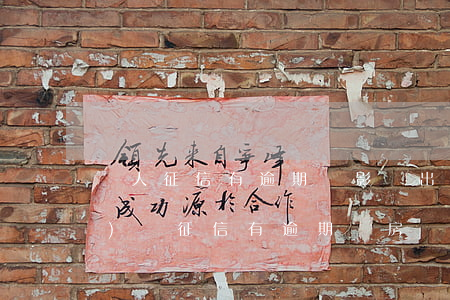 领先来自争峰
人征信有逾期 影 出
成功源於合作
) 征信有逾期 房